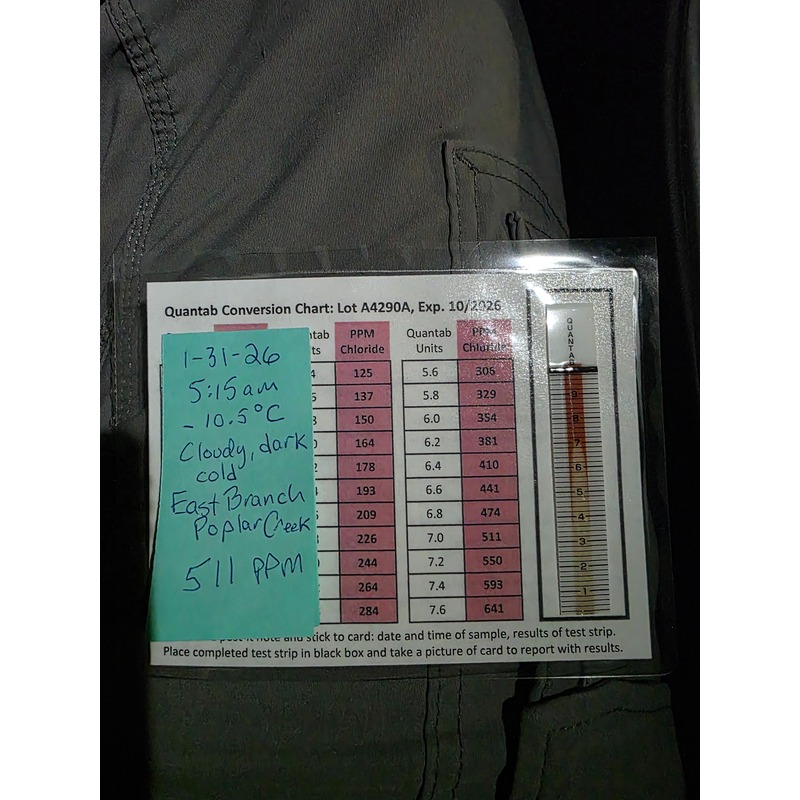 Quantab Conversion Chart: Lot A4290A, Exp. 10/2026
1-31-26
5:15am
-10.5°C
Cloudy, dark
cold
East Branch
Poplar Creek
511 PPM
PPM Chloride
125
137
150
164
178
193
209
226
244
264
284
Quantab Units PPM Chloride
5.6 306
5.8 329
6.0 354
6.2 381
6.4 410
6.6 441
6.8 474
7.0 511
7.2 550
7.4 593
7.6 641
QUANTAB
9
8
7
6
5
4
3
2
1
note and stick to card: date and time of sample, results of test strip.
Place completed test strip in black box and take a picture of card to report with results.